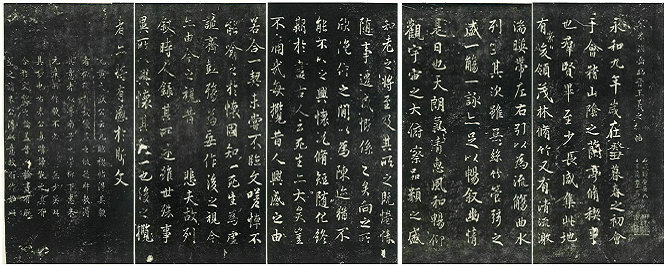 永和九年歲在癸丑暮春之初會
于會稽山陰之蘭亭脩稧事
也羣賢畢至少長咸集此地
有峻領茂林脩竹又有清流激
湍暎帶左右引以為流觴曲水
列坐其次雖無絲竹管弦之
盛一觴一詠亦足以暢叙幽情
是日也天朗氣清惠風和暢仰
觀宇宙之大俯察品類之盛
知老之將至及其所之既惓情
隨事遷感慨係之矣向之所
欣俛仰之間以為陳迹猶不
能不以之興懷况脩短隨化終
期於盡古人云死生亦大矣豈
不痛哉每攬昔人興感之由
若合一契未嘗不臨文嗟悼不
能喻之於懷固知一死生為虛
誕齊彭殤為妄作後之視今
亦由今之視昔悲夫故列
叙時人錄其所述雖世殊事
異所以興懷其致一也後之攬
者亦將有感於斯文